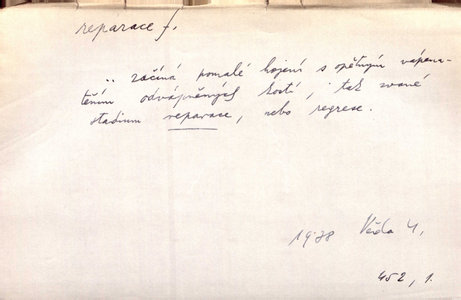 reparace f.
.. začíná pomalé hojení s opětným vápena-
těním odvápněných kostí, tak zvané
stadium reparace, nebo regrese.
1938 Věda 4,
452, 1.